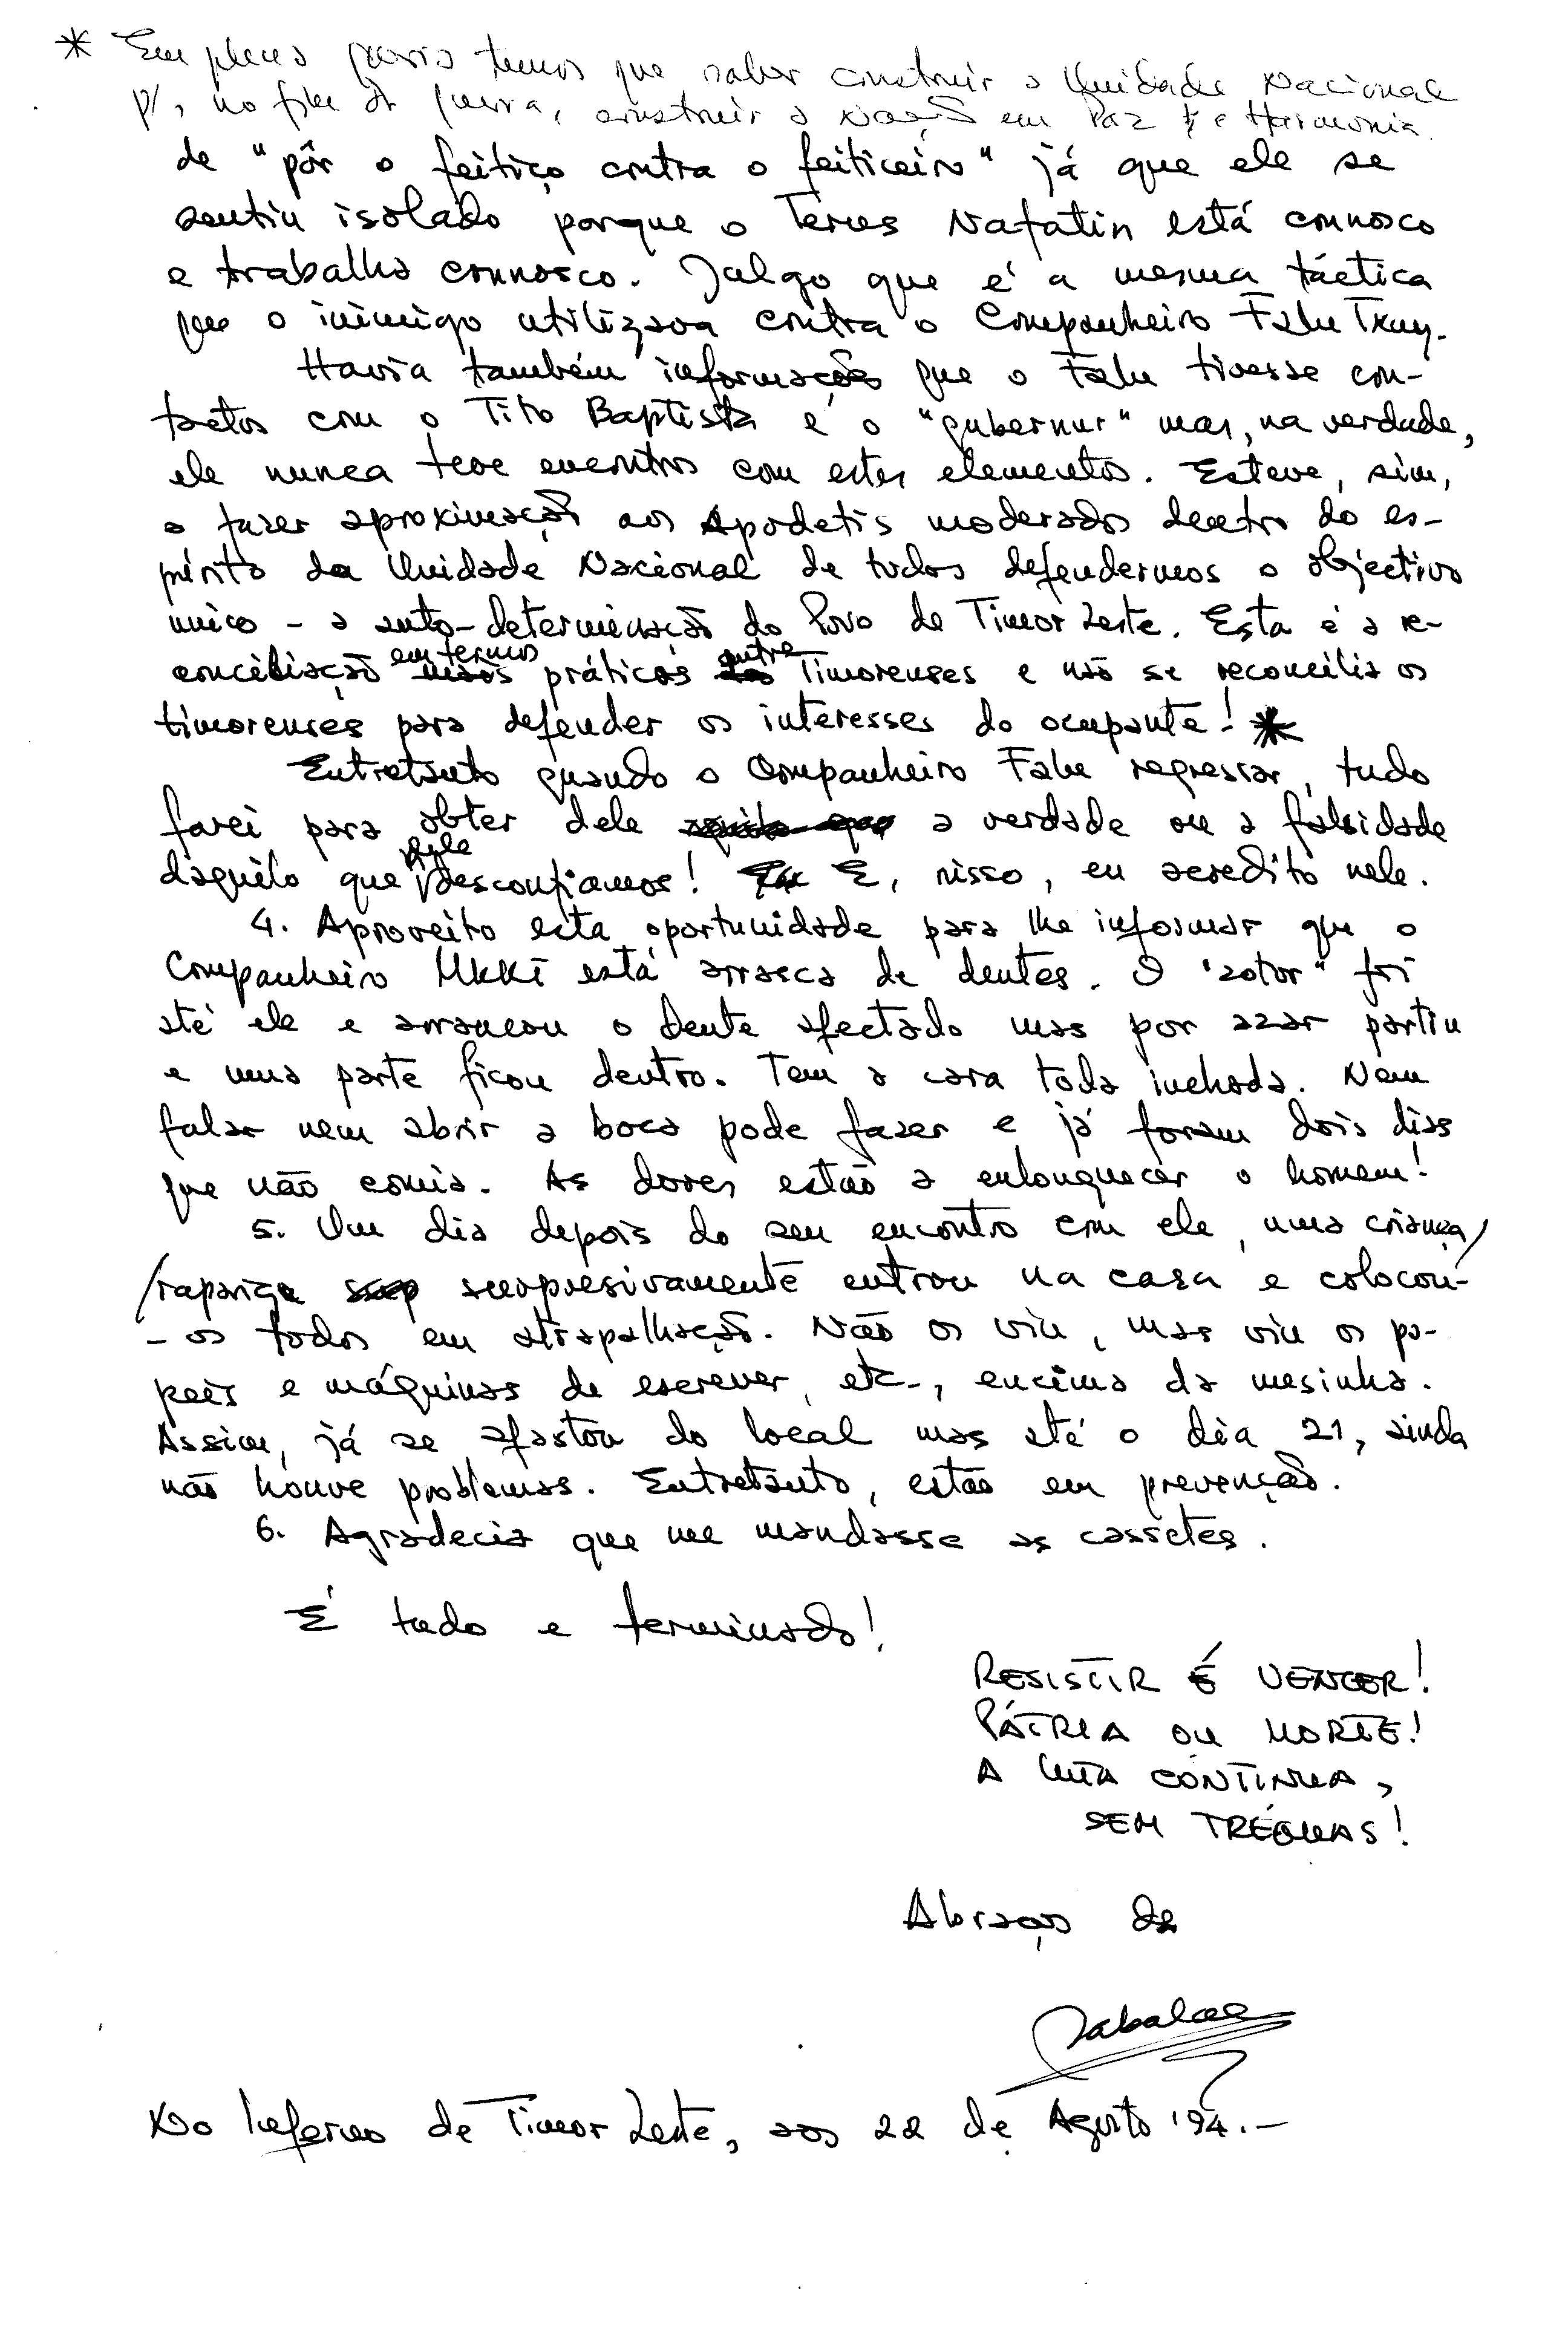 * Em plena guerra temos que saber construir a Unidade Nacional
p/, no fim da guerra, construir a Nação em Paz e Harmonia.
de "pôr o feitiço contra o feiticeiro" já que ele se
sentiu isolado porque o Terus Nafatin está connosco
e trabalha connosco. Julgo que é a mesma táctica
que o inimigo utilizava contra o Companheiro Falu Txay.
Havia também informações que o Falu tivesse con-
tactos com o Tito Baptista e o "gubernur" mas, na verdade,
ele nunca teve encontros com estes elementos. Esteve, sim,
a fazer aproximação aos Apodetis moderados dentro do es-
pírito da Unidade Nacional de todos defendermos o objectivo
único - a auto-determinação do Povo de Timor Leste. Esta é a re-
conciliação em termos práticos entre Timorenses e não se reconcilia os
timorenses para defender os interesses do ocupante! *
Entretanto quando o Companheiro Falu regressar, tudo
farei para obter dele a verdade ou a falsidade
daquilo que dele desconfiamos! E, nisso, eu acredito nele.
4. Aproveito esta oportunidade para lhe informar que o
Companheiro Ukki está arrasca de dentes. O "zotor" foi
até ele e arrancou o dente afectado mas por azar partiu
e uma parte ficou dentro. Tem a cara toda inchada. Nem
falar nem abrir a boca pode fazer e já foram dois dias
que não comia. As dores estão a enlouquecer o homem!
5. Um dia depois do seu encontro com ele, uma criança/
/rapariga surpresivamente entrou na casa e colocou-
-os todos em atrapalhação. Não os viu, mas viu os pa-
peis e máquinas de escrever, etc., encima da mesinha.
Assim, já se afastou do local mas até o dia 21, ainda
não houve problemas. Entretanto, estão em prevenção.
6. Agradecia que me mandasse as cassetes.
É tudo e terminado!
RESISTIR É VENCER!
PÁTRIA OU MORTE!
A LUTA CONTINUA,
SEM TRÉGUAS!
Abraços de
Sabalae
No Inferno de Timor Leste, aos 22 de Agosto '94.-